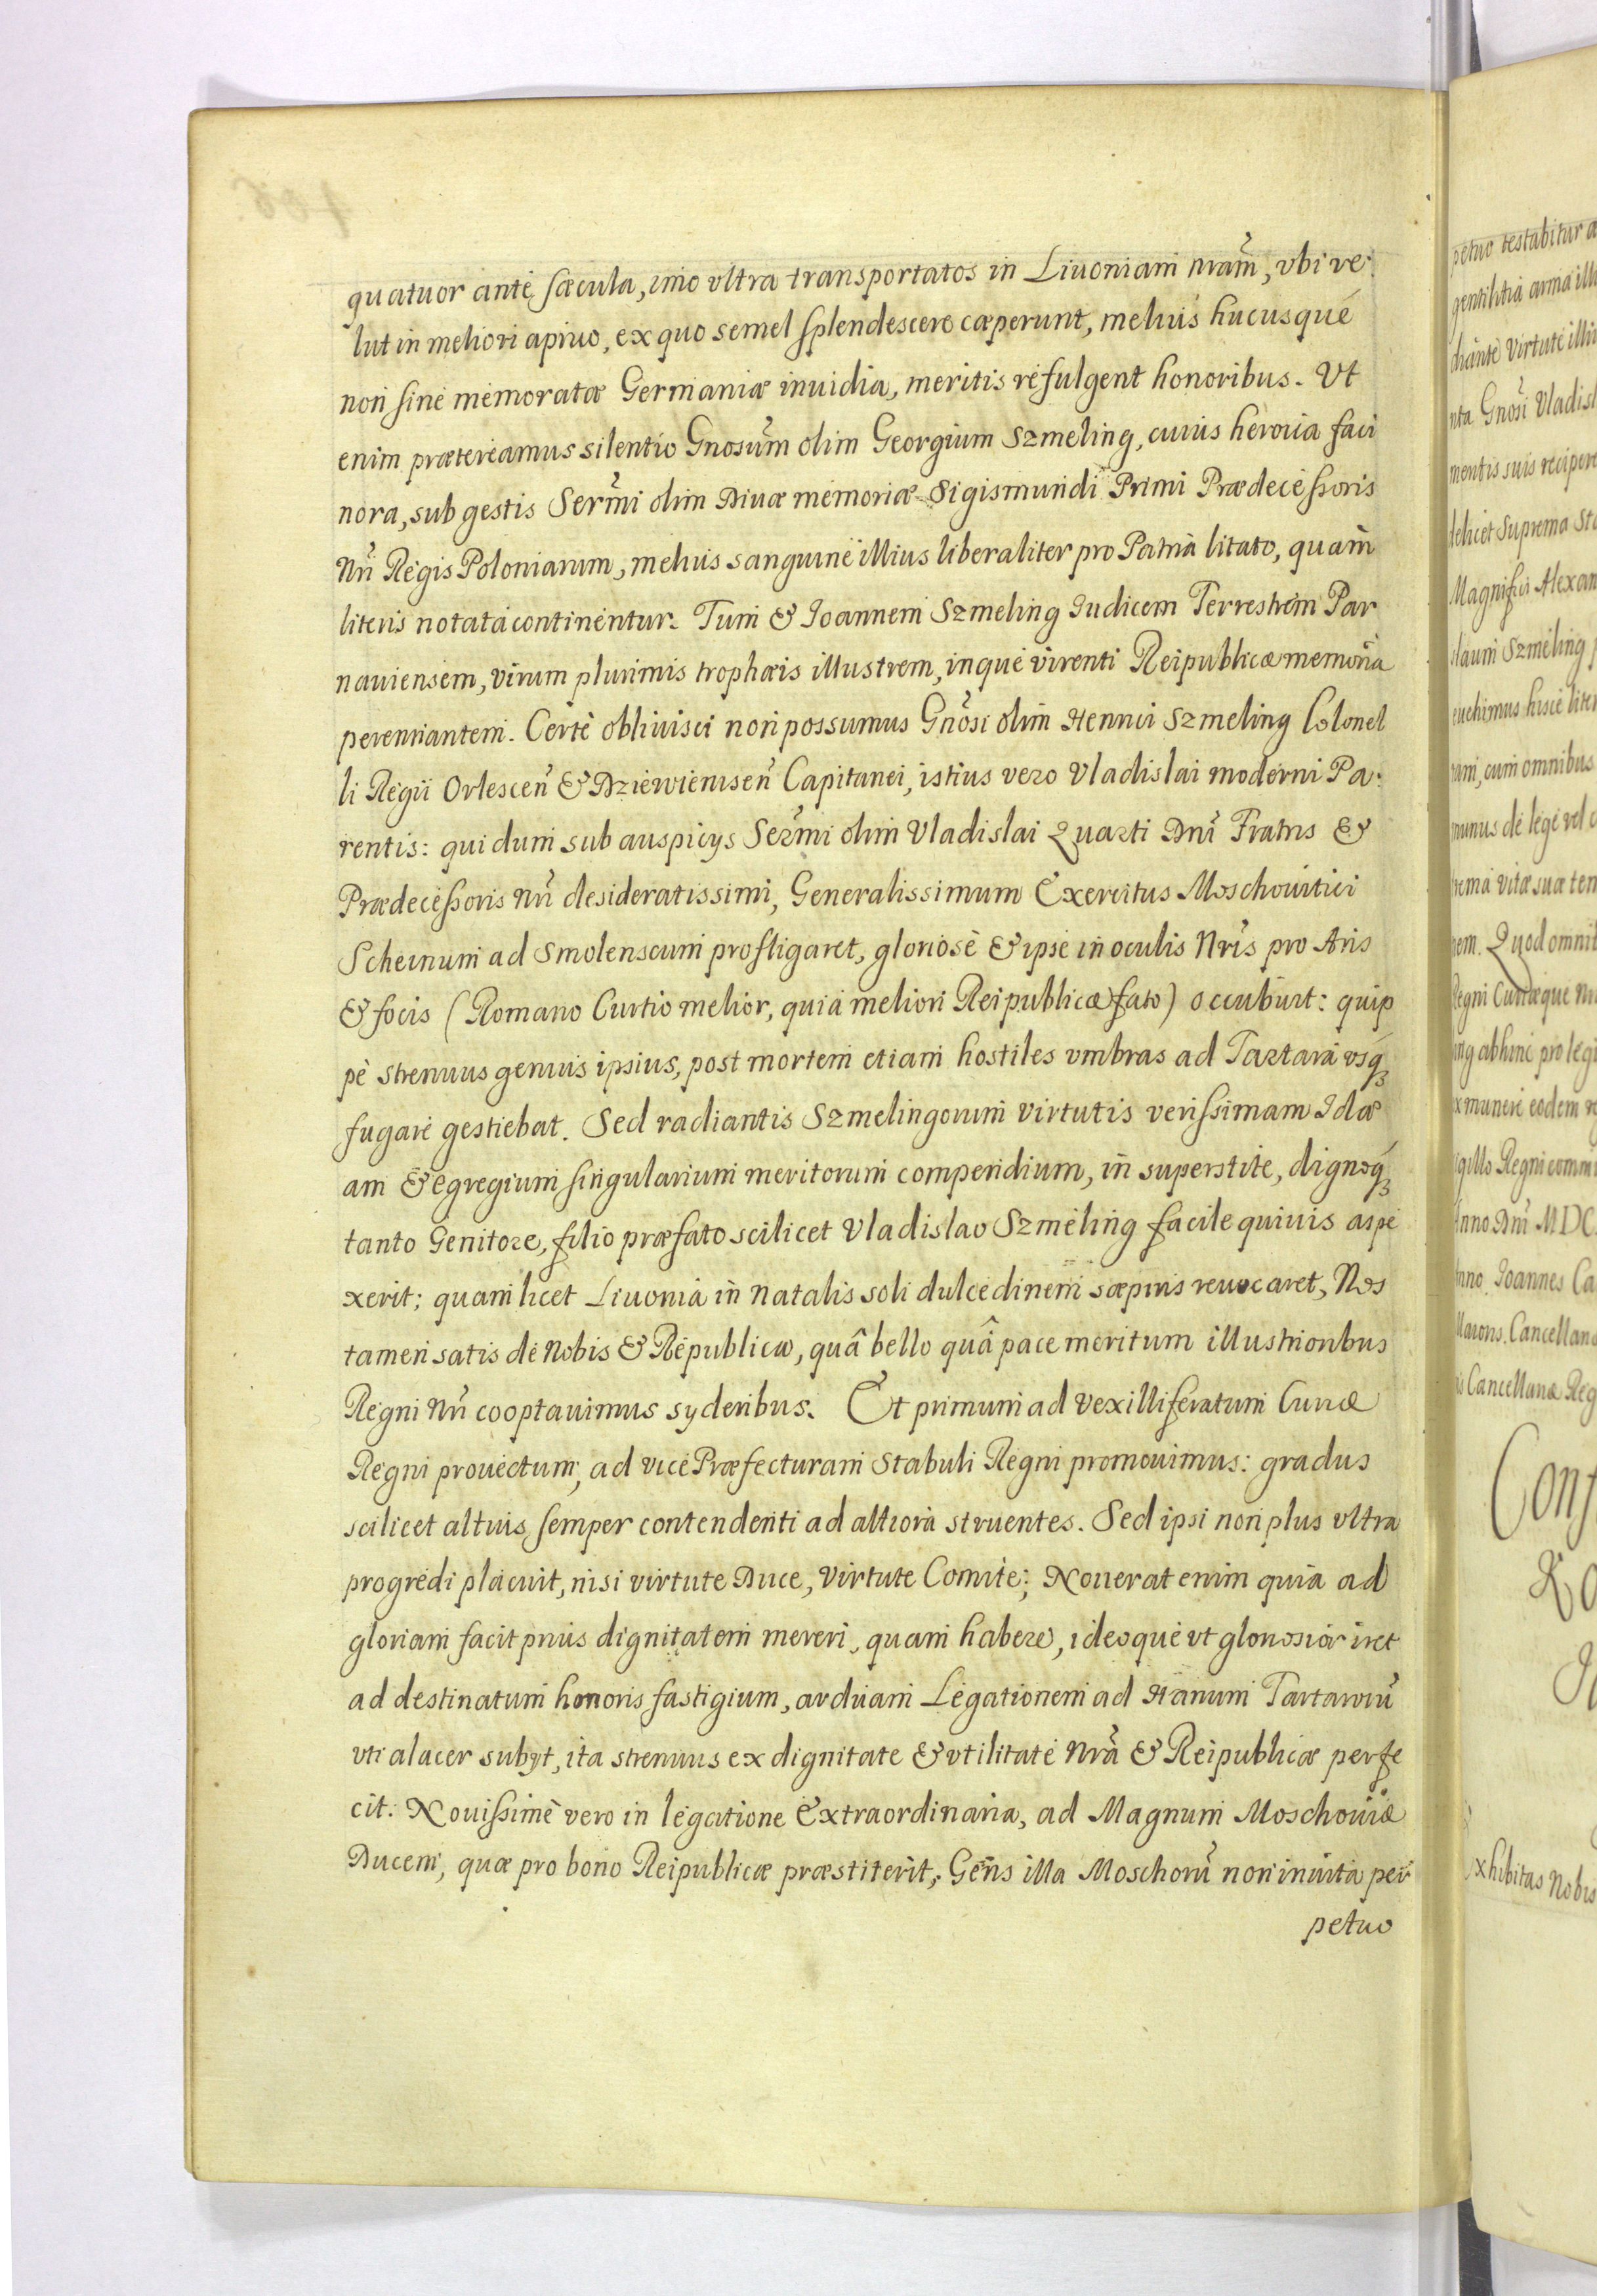 quatuor ante sæcula, imo vltra transportatos in Liuoniam nr̃am, vbi ve-
lut in meliori aprico, ex quo semel splendescere cæperunt, melius hucusque
non sine memoratæ Germaniæ inuidia, meritis refulgent honoribus. Vt
enim prætereamus silentio Gnosum olim Georgium Szmeling, cuius heroica faci
nora, sub gestis Serm̃i olim Diuæ memoriæ Sigismundi Primi Prædecessoris
Nr̃i Regis Poloniarum, melius sanguine illius liberaliter pro Patria litato, quam
literis notata continentur. Tum & Ioannem Szmeling Iudicem Terrestrem Par
nauiensem, virum plurimis trophæis illustrem, inque virenti Reipublicæ memoria
perennantem. Certe obliuisci non possumus Gnosi olim Henrici Szmeling Colonel
li Regii Orlescen̄ & Dziewienisen̄ Capitanei, istius vero Vladislai moderni Pa-
rentis: qui dum sub auspicys Serm̃i olim Vladislai Quarti Dn̄i Fratris &
Prædecessoris Nr̃i desideratissimi, Generalissimum Exercitus Moschouitici
Scheinum ad Smolenscum profligaret, gloriose & ipse in oculis Nr̃is pro Aris
& focis (Romano Curtio melior, quia meliori Reipublicæ fato) occubuit: quip
pe strenuus genius ipsius, post mortem etiam hostiles vmbras ad Tartara vsqꝫ
fugare gestiebat. Sed radiantis Szmelingorum virtutis verissimam Idæ
am & egregium singularium meritorum compendium, in superstite, dignoqꝫ
tanto Genitore, filio præfato scilicet Vladislao Szmeling facile quiuis aspe
xerit; quam licet Liuonia in natalis soli dulcedinem sæpius reuocaret, Nos
tamen satis de Nobis & Republica, quâ bello quâ pace meritum illustrioribus
Regni Nr̃i cooptauimus syderibus. Et primum ad vexilliferatum Curiæ
Regni prouectum, ad vice Præfecturam Stabuli Regni promouimus: gradus
scilicet altius semper contendenti ad altiora struentes. Sed ipsi non plus vltra
progredi placuit, nisi virtute Duce, virtute Comite; Nouerat enim quia ad
gloriam facit prius dignitatem mereri, quam habere, ideoque vt gloriosior iret
ad destinatum honoris fastigium, arduam Legationem ad Hanum Tartarorū
vti alacer subyt, ita strenuus ex dignitate & vtilitate Nr̃a & Reipublicæ perfe
cit. Nouissimè vero in legatione Extraordinaria, ad Magnum Moschouiæ
Ducem, quæ pro bono Reipublicæ præstiterit, Gens illa Moschorū non inuita per
petuo
petuo testabitur a
gentilitia arma ill
diante virtute illu
nta Gnosi Vladisl
mentis suis recipere
delicet Suprema Sta
Magnifici Alexan
slaum Szmeling p
euehimus hisce liter
ram, cum omnibus
munus de lege vel c
rema vitæ suæ tem
nem. Quod omnib
Regni Curiæque Nr
ing abhinc pro legi
ex munere eodem r
igillo Regni comm
Anno Dn̄i MDC
nno. Ioannes Ca
Mauons. Cancellano
is Cancellariæ Reg
Conf
xhibitas Nobis